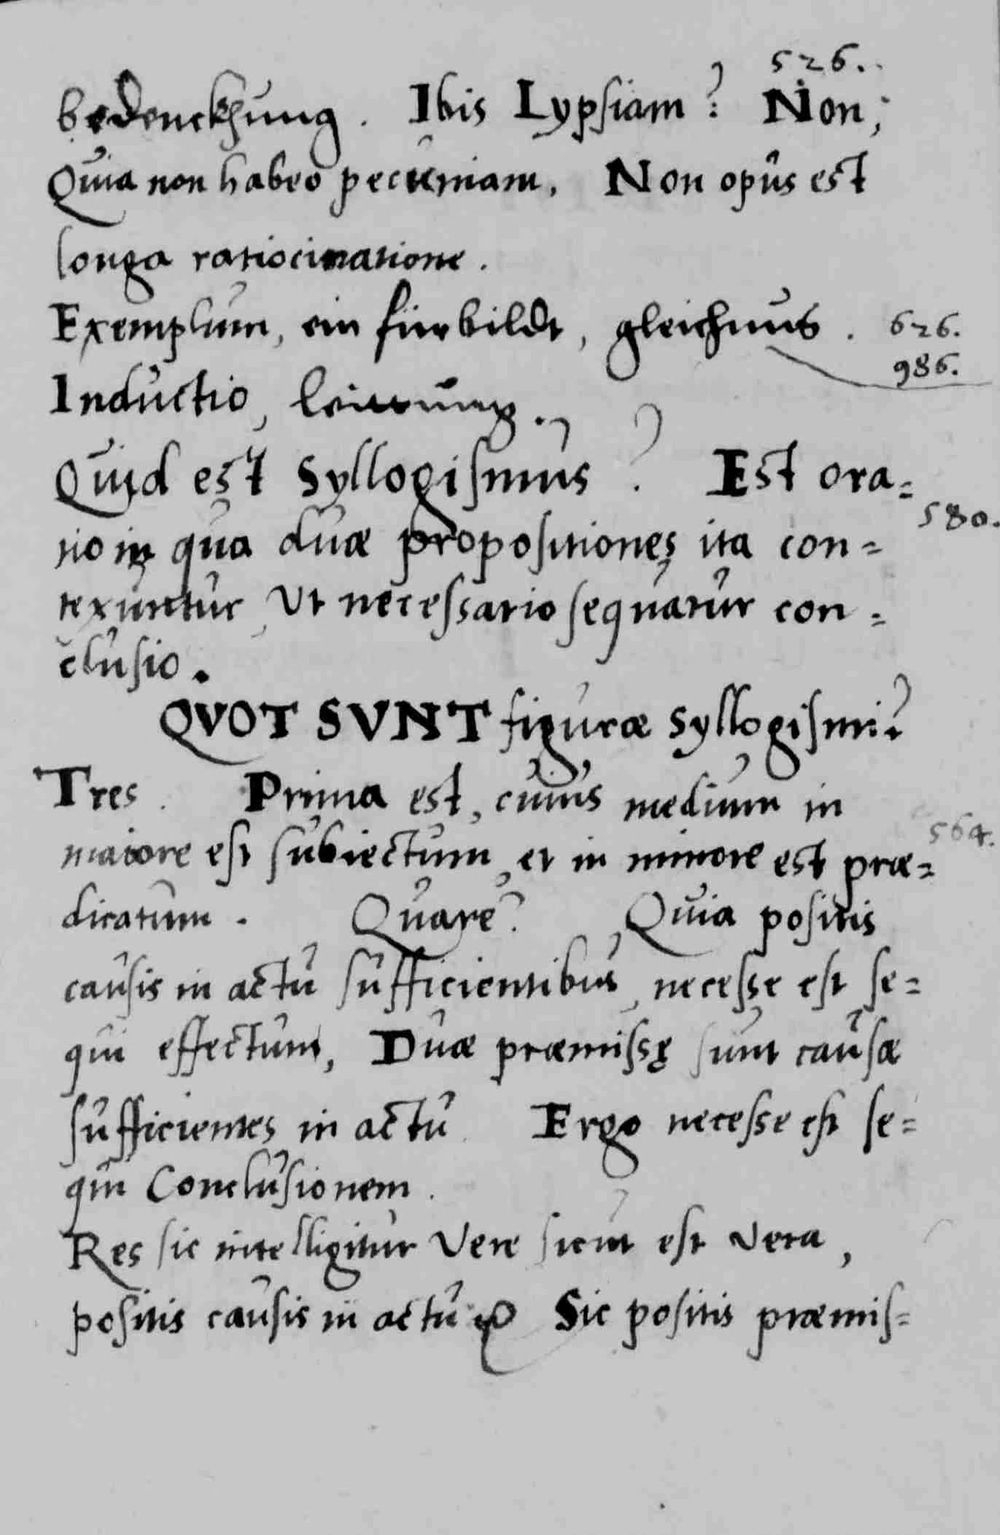 526.
bedenckhung. Ibis Lypsiam? Non;
Quia non habeo pecuniam, Non opus est
longa ratiocinatione.
Exemplum, ein fürbildt, gleichnus. 626.
986.
Inductio, leittung.
Quid est Syllogismus? Est ora=
580.
tio in qua duæ propositiones ita con=
texuntur, Ut necessario sequatur con=
clusio.
QVOT SVNT figuræ Syllogismi?
Tres. Prima est, cuius medium in
564.
maiore est subiectum, et in minore est præ=
dicatum. Quare? Quia positis
causis in actu sufficientibus, necesse est se=
qui effectum, Duæ præmissę sunt causæ
sufficientes in actu. Ergo necesse est se=
qui Conclusionem.
Res sic intelligitur Vere sicut est Vera,
positis causis in actu Sic positis præmis=